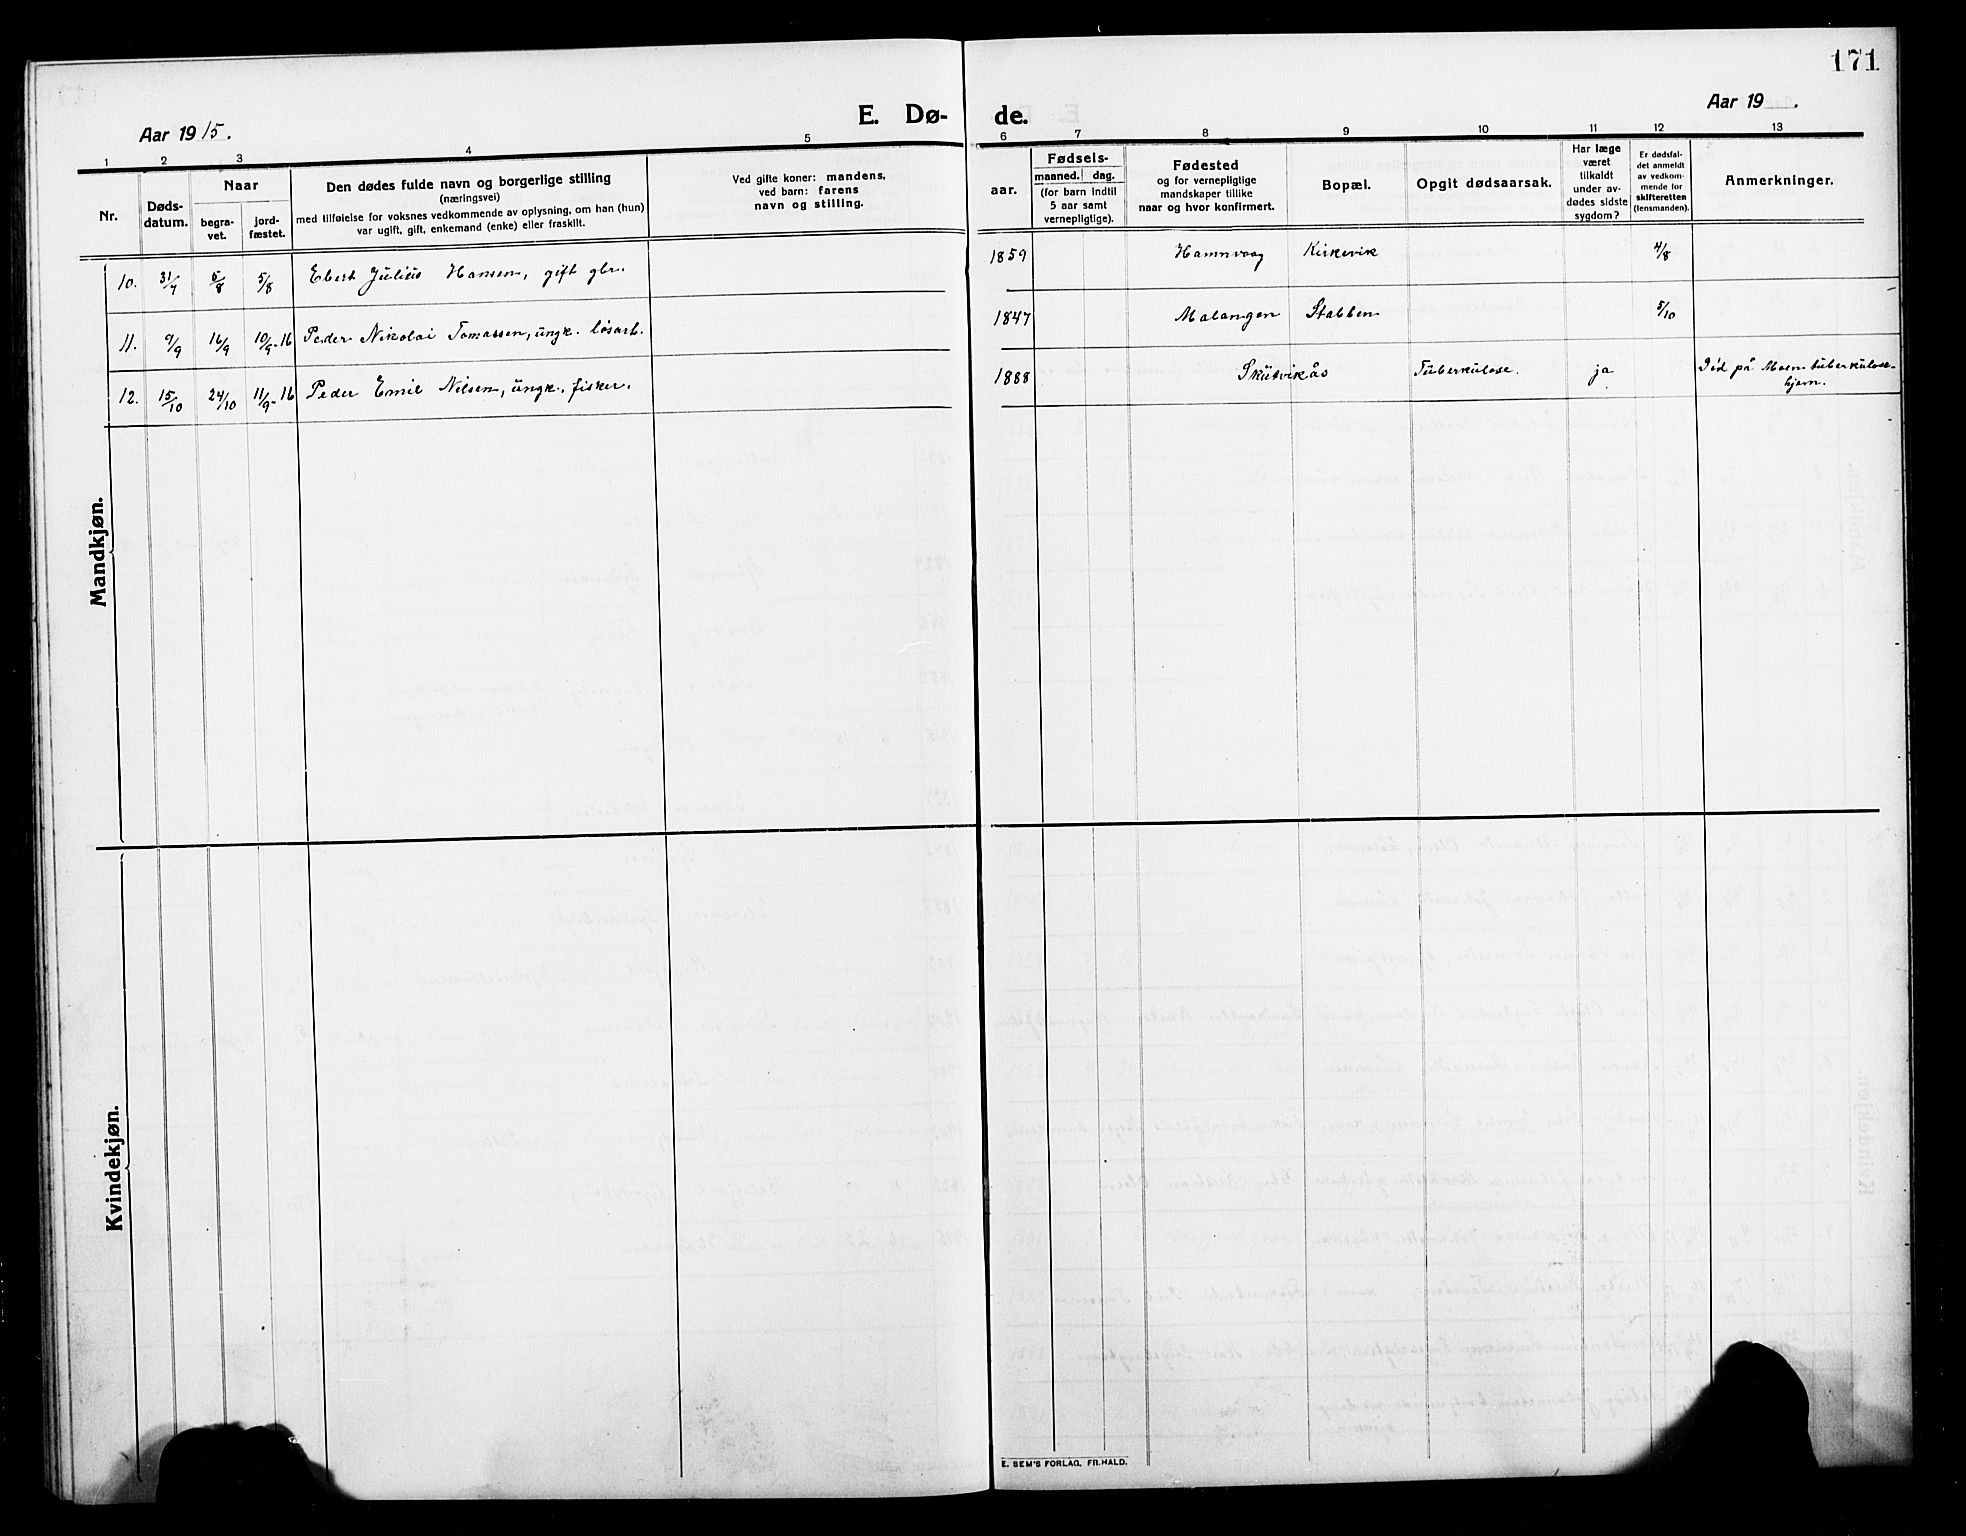 171
Aar 1915.
E. Dø-
de.
Aar 19 .
1 2 3 4 5 6 7 8 9 10 11 12 13
Nr.
Døds-
datum.
Naar
begra-
vet.
jord-
fæstet.
Den dødes fulde navn og borgerlige stilling
(næringsvei)
med tilføielse for voksnes vedkommende av oplysning, om han (hun)
var ugift, gift, enkemand (enke) eller fraskilt.
Ved gifte koner: mandens,
ved barn: farens
navn og stilling.
aar.
Fødsels-
maaned. dag.
(for barn indtil
5 aar samt
vernepligtige).
Fødested
og for vernepligtige
mandskaper tillike
naar og hvor konfirmert.
Bopæl.
Opgit dødsaarsak.
Har læge
været
tilkaldt
under av-
dødes sidste
sygdom?
Er dødsfal-
det anmeldt
av vedkom-
mende for
skifteretten
(lensmanden).
Anmerkninger.
Mandkjøn.
10. 31/7 5/8 5/8 Ebert Julius Hansen, gift gbr. 1859 Hamnvaag Kirkevik 4/8
11. 9/9 16/9 10/9-16 Peder Nikolai Tomassen, ungk. løsarb. 1847 Malangen Stabben 5/10
12. 15/10 24/10 11/9-16 Peder Emil Nilsen, ungk., fisker. 1888 Skutvikås Tuberkulose. ja Død på Moen tuberkulose-
hjem.
Kvindekjøn.
E. SEM'S FORLAG, FR.HALD.